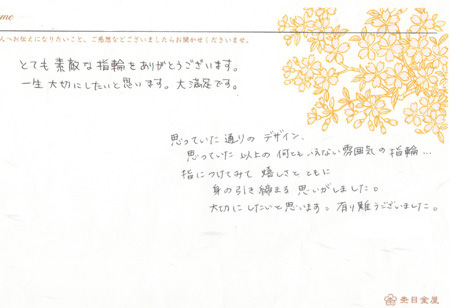 me
んへお伝えになりたいこと、ご感想などございましたらお聞かせくださいませ。
とても素敵な指輪をありがとうございます。
一生大切にしたいと思います。大満足です。
思っていた通りのデザイン、
思っていた以上の何ともいえない雰囲気の指輪…
指につけてみて嬉しさとともに
身の引き締まる思いがしました。
大切にしたいと思います。有り難うございました。
杢目金屋